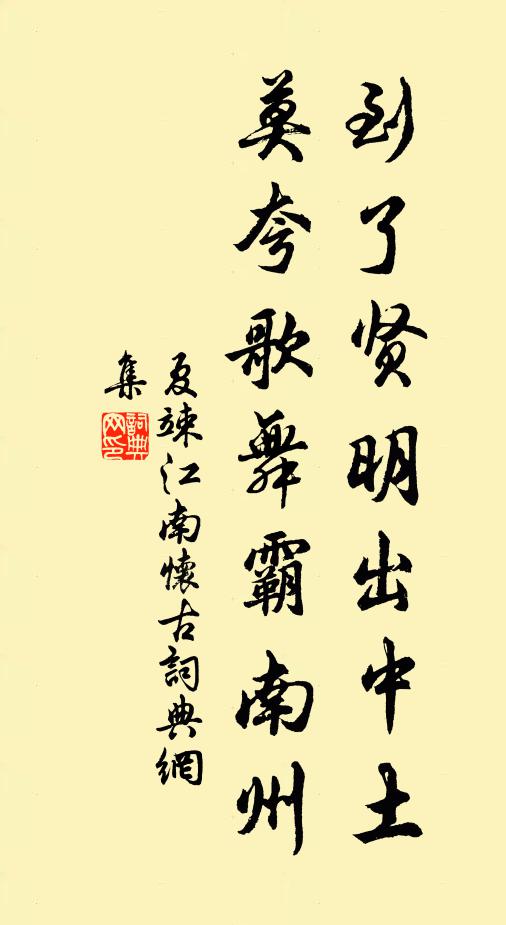 到了贤明出中土
莫夸歌舞霸南州
夏竦江南懷古詞典網
集
詞典網印